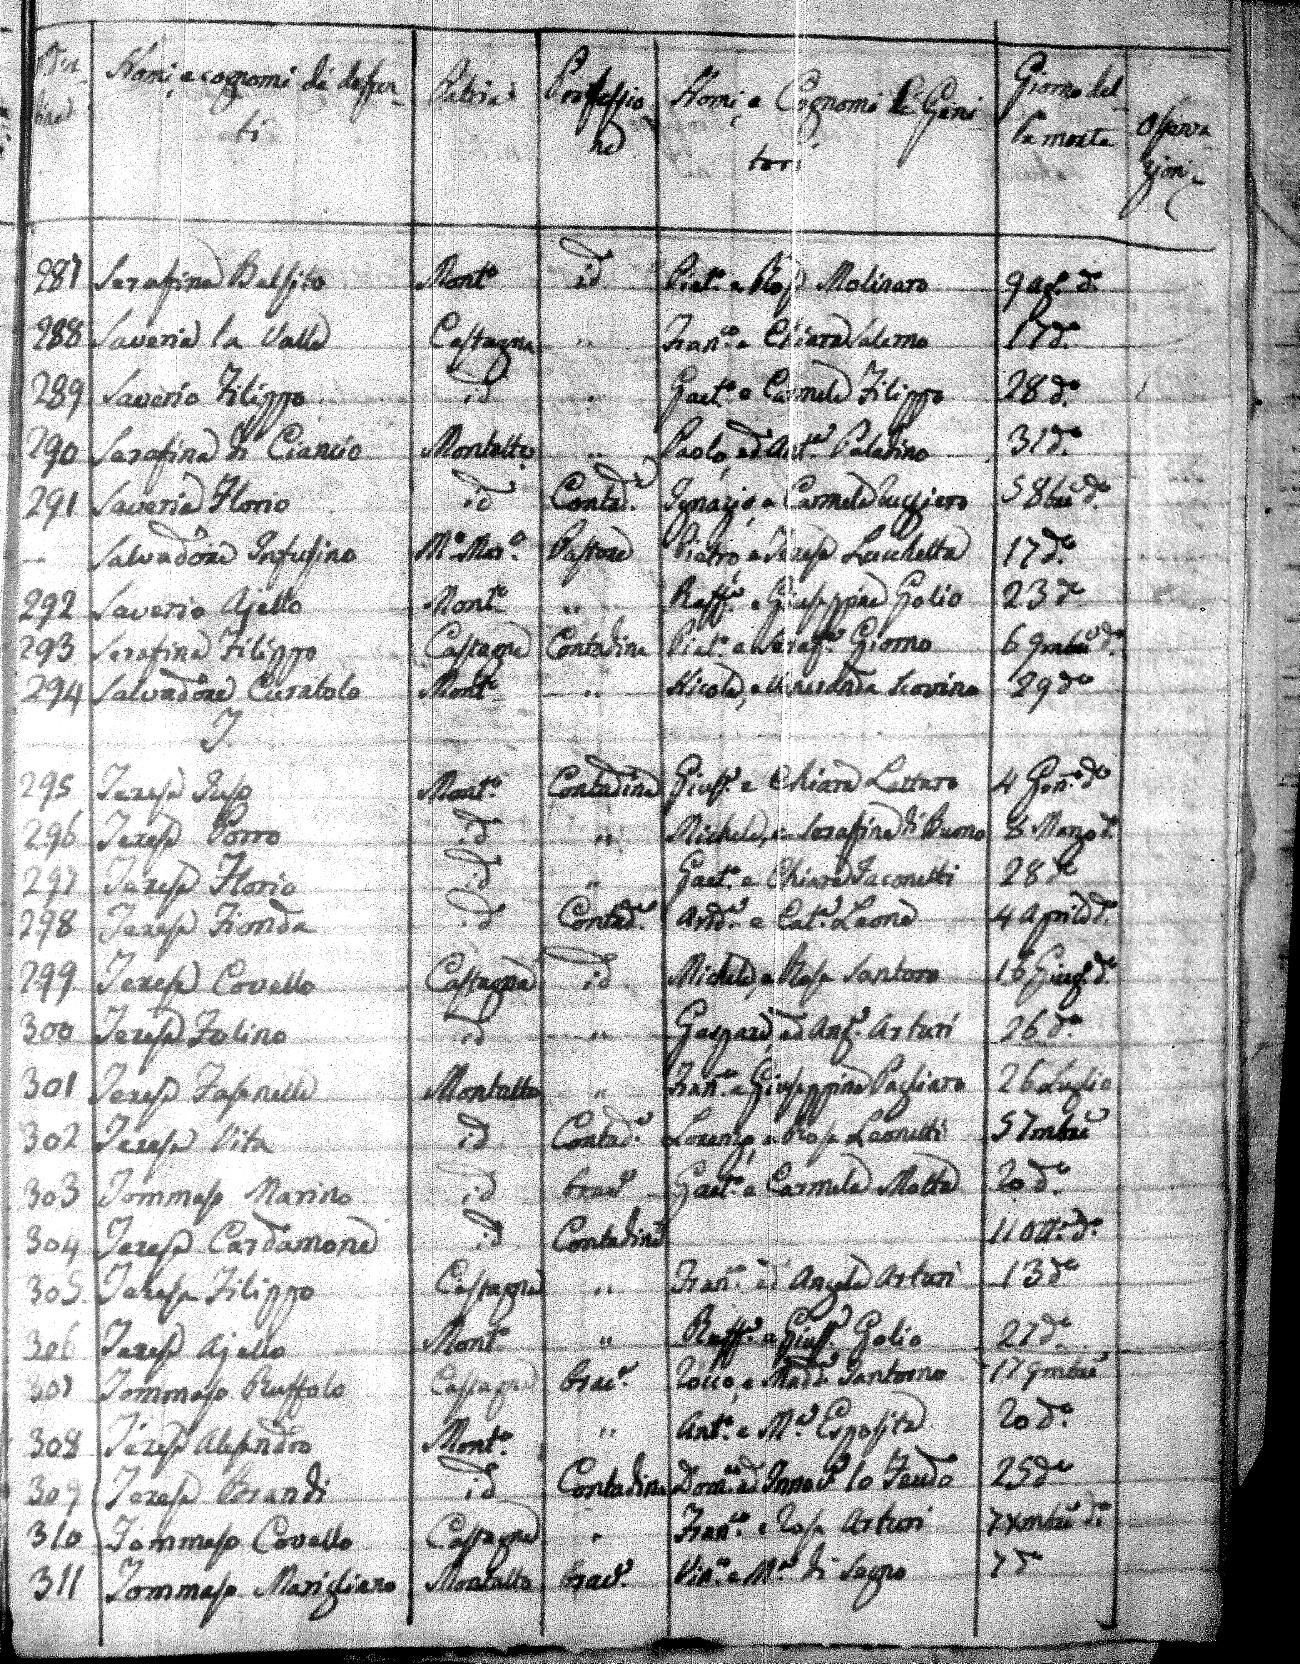 Nomi, e cognomi di defun-
ti
Patria
Professio
ne
Nomi, e Cognomi de Geni
tori
Giorno del
la morte
Osserva
zioni
287 Serafina Belsito Mont.e id Piet.o e Rosa Molinaro 9 ag.o d.o
288 Saveria la Valle Castagna " Fran.co e Chiara Salerno 17 d.o
289 Saverio Filippo id " Gaet.o e Carmela Filippo 28 d.o
290 Serafina di Ciancio Montalto " Paolo, ed Ant.a Paladino 31 d.o
291 Saveria Florio id Contad.a Ignazio, e Carmela Ruggiero 5 8bre d.o
— Salvadore Infusino Pastore Pietro, e Teresa Lucchetta 17 d.o
292 Saverio Ajello Mont.e " Raff.e e Giuseppina Golio 23 d.o
293 Serafina Filippo Castagna Contadina Piet.o e Seraf.a Giorno 6 9mbre d.o
294 Salvadore Curatolo Mont.e " Nicola, e Iovino 29 d.o
T.
295 Teresa Mont.o Contadina Gius.e e Chiara Lattaro 4 Gen.o d.o
296 Teresa Porro id " Michele, e Serafina di Buono 8 Marzo d.o
297 Teresa Florio id " Gaet.o e Chiara Iaconetti 28 d.o
298 Teresa Fionda id Contad.a And.a e Cat.a Leone 4 Aprile d.o
299 Teresa Covello Castagna id Michele, e Rosa Santoro 16 Giug.o d.o
300 Teresa Folino id " Gaspare, ed Ang.a Arturi 26 d.o
301 Teresa Fasanella Montalto " Fran.co e Giuseppina Pagliaro 26 Luglio
302 Teresa Vita id Contad.a Lorenzo, e Rosa Leonetti 5 7mbre
303 Tommaso Marino id brac.e Gaet.o e Carmela Motta 20 d.o
304 Teresa Cardamone id Contadina 11 Ott.e d.o
305 Teresa Filippo Castagna " Fran.co ed Angela Arturi 13 d.o
306 Teresa Ajello Mont.o " Raff.e e Gius.a Golio 27 d.o
307 Tommaso Ruffolo Castagna brac.e Rocco, e Madd.a Santorno 17 9mbre
308 Teresa Alesandro Mont.o " Ant.o e M.a Esposita 20 d.o
309 Teresa Brandi id Contadina Dom.co ed Innoc.a lo Feudo 25 d.o
310 Tommaso Covello Castagna " Fran.co e Rosa Arturi 7 Xmbre d.o
311 Tommaso Marigliano Montalto brac.e Vin.o e M.a di Segno 7 d.o